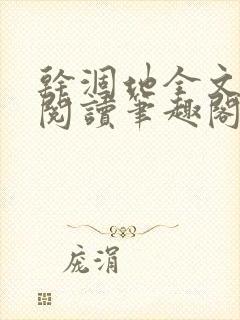 幹涸地全文
閱讀筆趣閣
庞涓